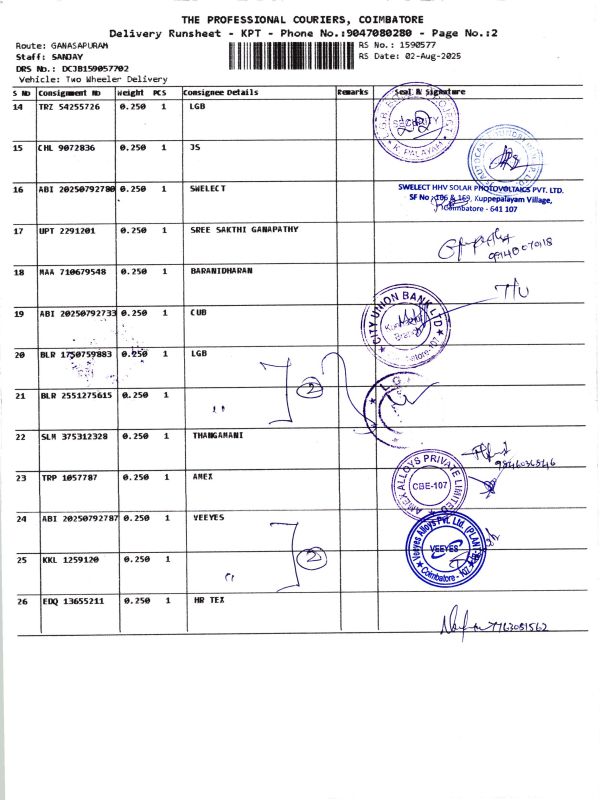 THE PROFESSIONAL COURIERS, COIMBATORE
Delivery Runsheet - KPT - Phone No.:9047080280 - Page No.:2
Route: GANASAPURAM
RS No.: 1590577
Staff: SANJAY
RS Date: 02-Aug-2025
DRS No.: DCJB159057702
Vehicle: Two Wheeler Delivery
S No Consignment No Weight PCS Consignee Details Remarks Seal & Signature
14 TRZ 54255726 0.250 1 LGB
15 CHL 9072836 0.250 1 JS
16 ABI 20250792780 0.250 1 SWELECT
SWELECT HHV SOLAR PHOTOVOLTAICS PVT. LTD.
SF No : 166 & 169, Kuppepalayam Village,
Coimbatore - 641 107
17 UPT 2291201 0.250 1 SREE SAKTHI GANAPATHY
18 MAA 710679548 0.250 1 BARANIDHARAN
19 ABI 20250792733 0.250 1 CUB
CITY UNION BANK LTD
Branch
20 BLR 1750759883 0.250 1 LGB
2
21 BLR 2551275615 0.250 1 "
22 SLM 375312328 0.250 1 THANGAMANI
23 TRP 1057787 0.250 1 AMEX
AMEX ALLOYS PRIVATE LIMITED
CBE-107
24 ABI 20250792787 0.250 1 VEEYES
Veeyes Alloys Pvt. Ltd.
VEEYES
Coimbatore - 107
2
25 KKL 1259120 0.250 1 "
26 EDQ 13655211 0.250 1 HR TEX
7763081562